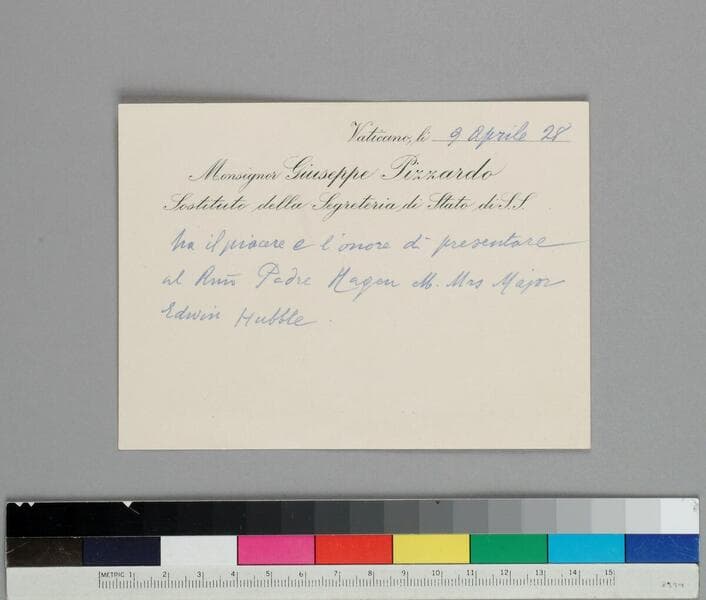 Vaticano, li 9 Aprile 28
Monsignor Giuseppe Pizzardo
Sostituto della Segreteria di Stato di S.S.
ha il piacere e l'onore di presentare
al Rmo Padre Hagen M. Mrs Major
Edwin Hubble.
METRIC 1 2 3 4 5 6 7 8 9 10 11 12 13 14 15